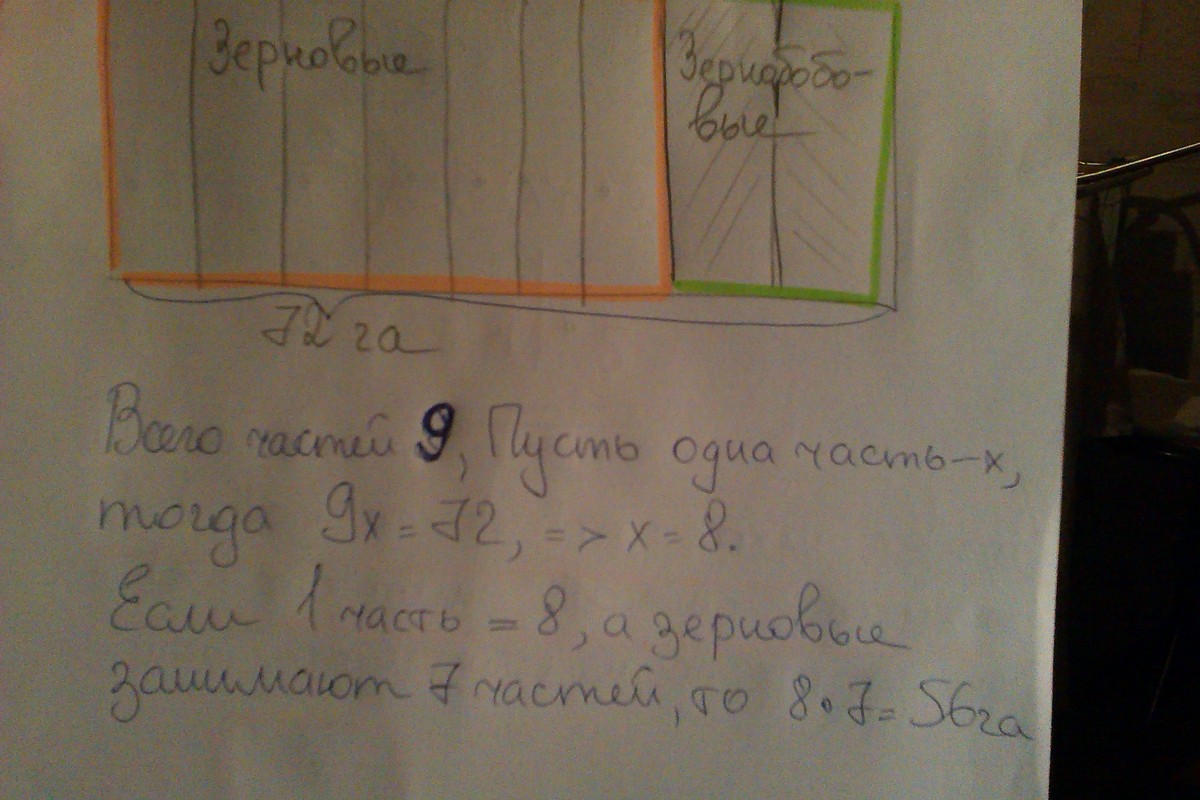 Зерновые
Зернобобо-
вые
72 га
Всего частей 9, Пусть одна часть-х,
тогда 9х=72, => х=8.
Если 1 часть = 8, а зерновые
занимают 7 частей, то 8•7=56га